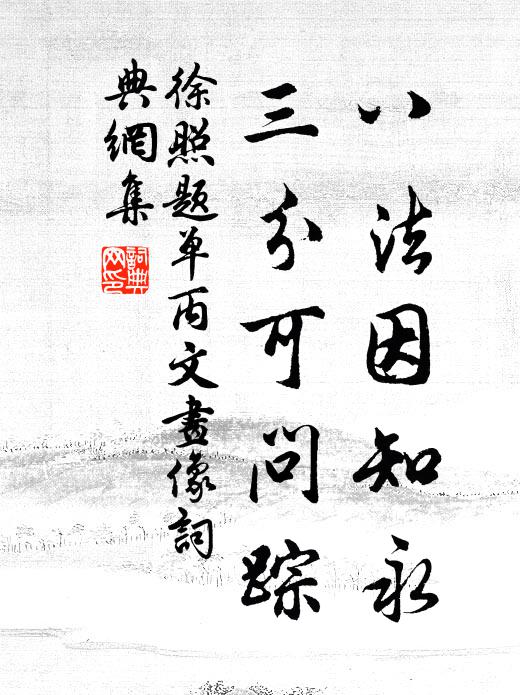 八法因知永
三分可问踪
徐照题单丙文畫像詞
典網集
詞典网印